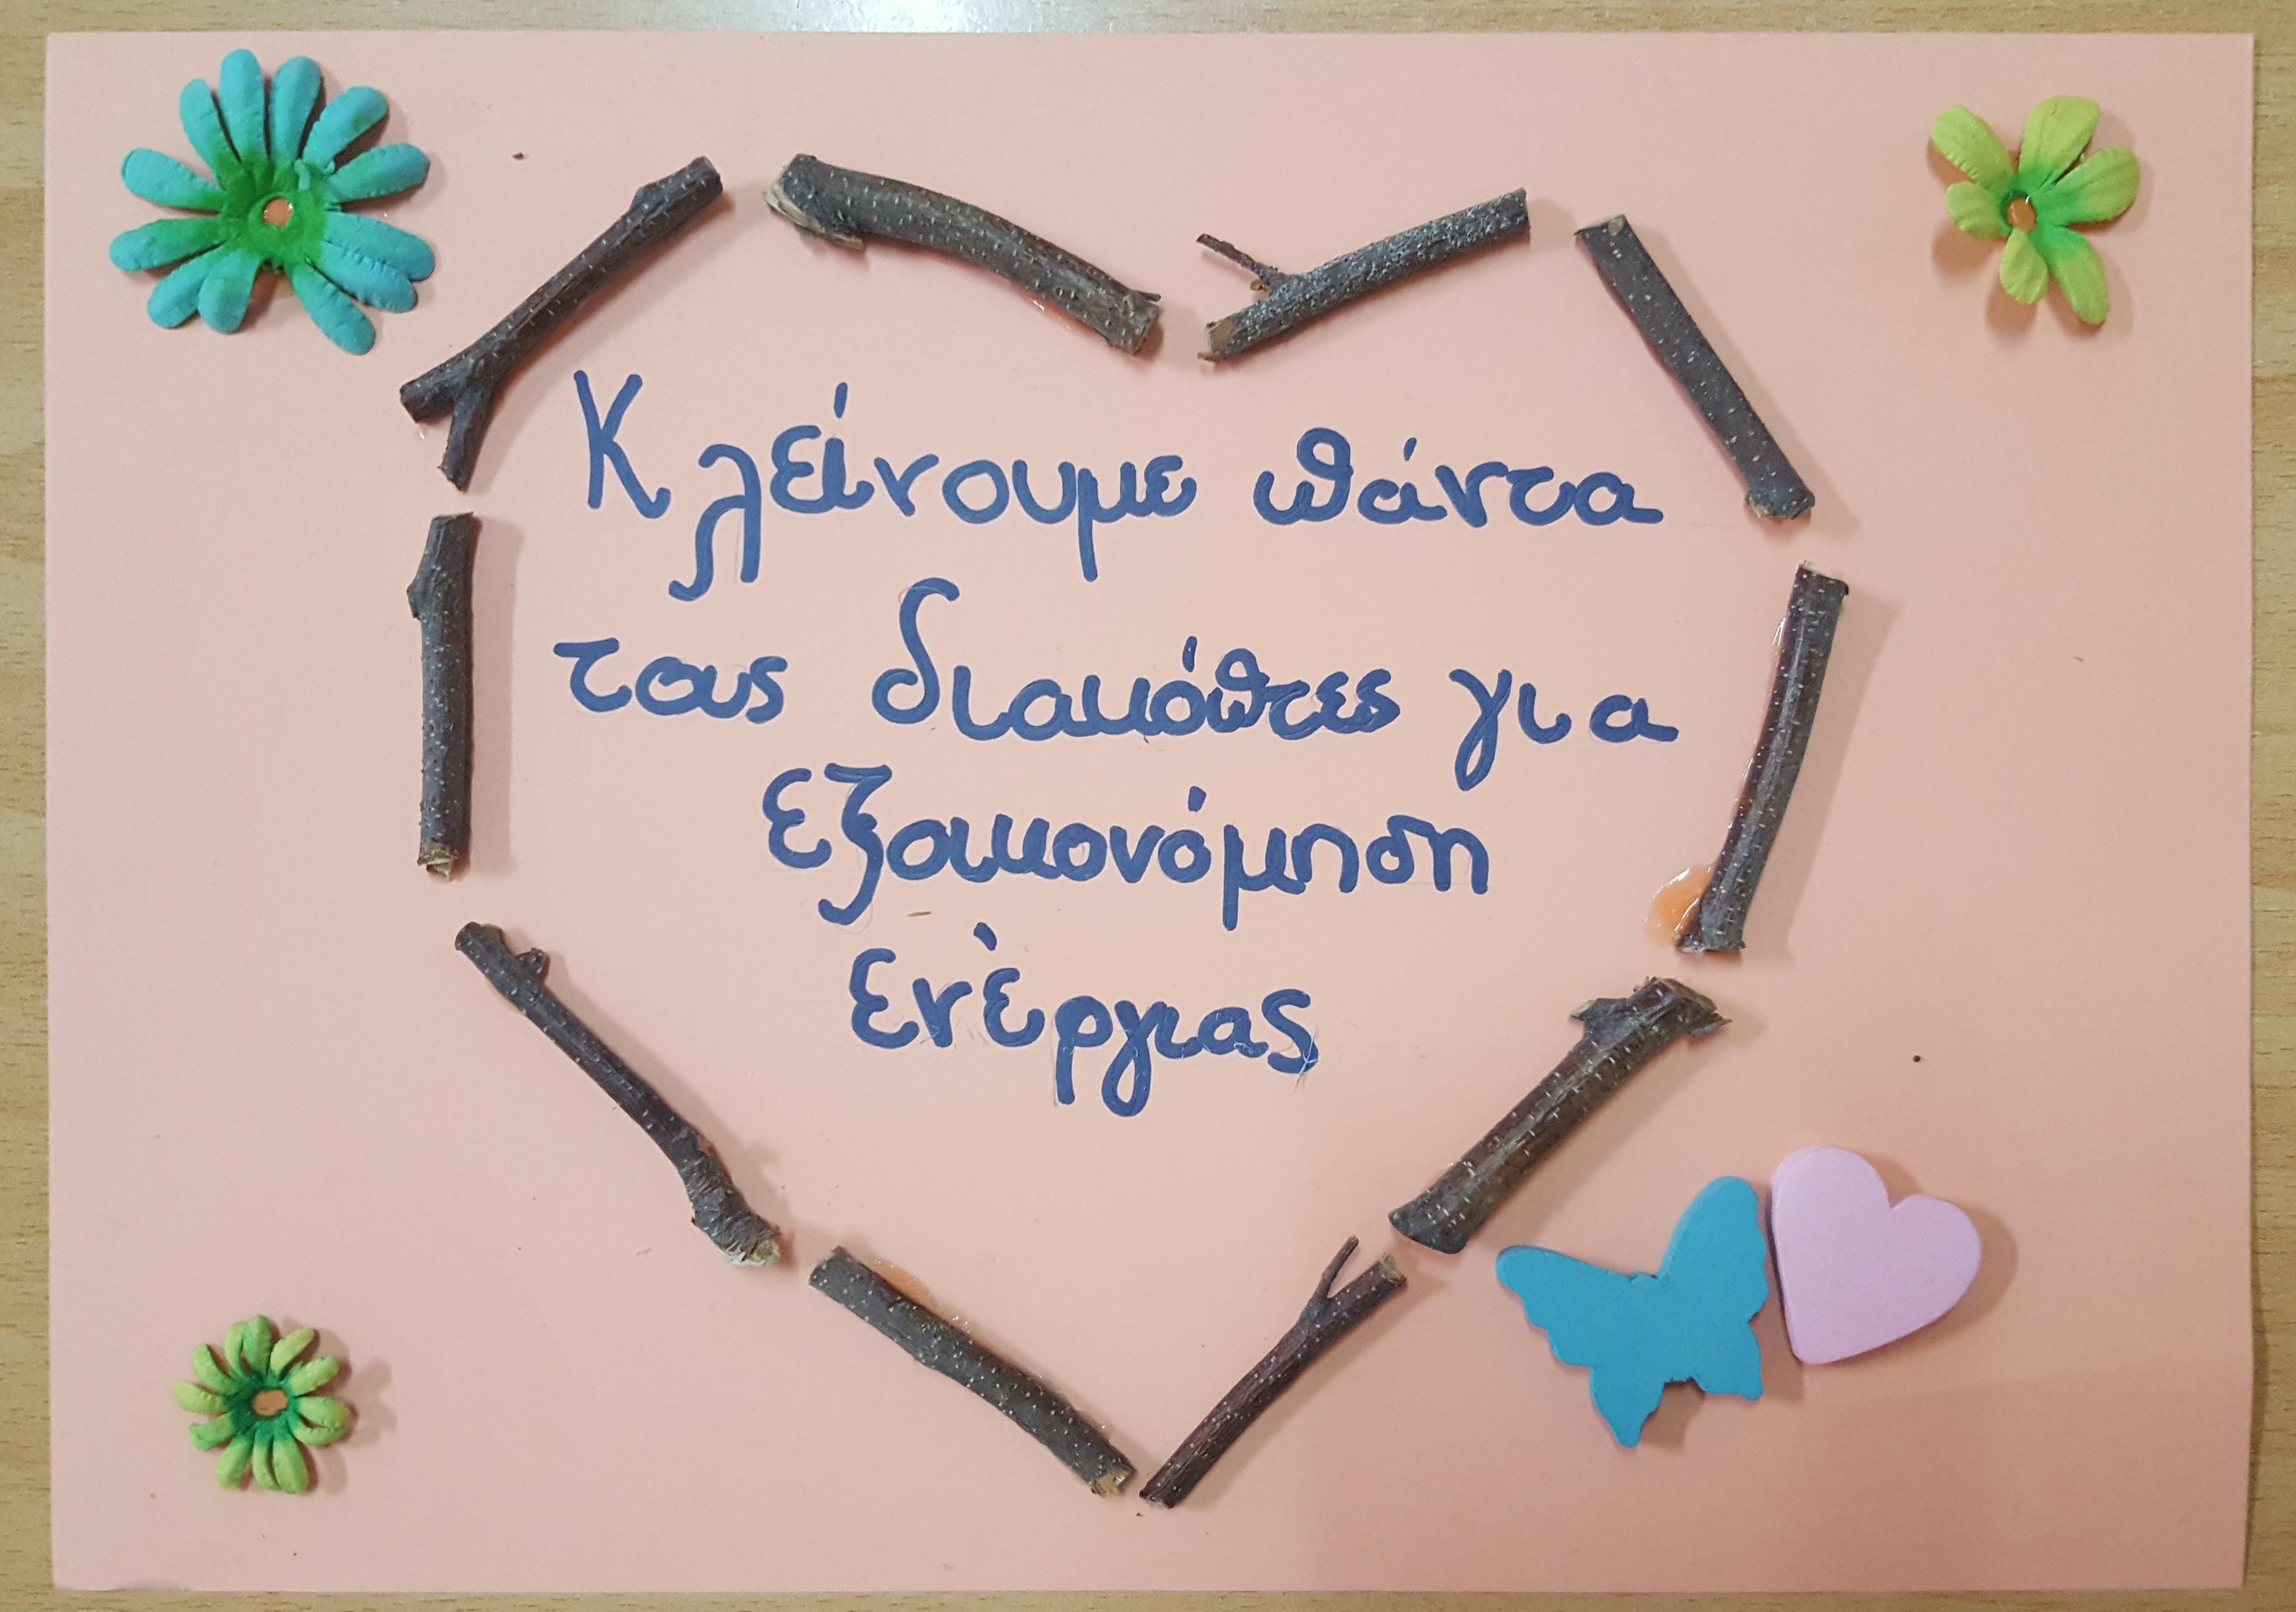 Κλείνουμε πάντα
τους διακόπτες για
εξοικονόμηση
ενέργιας